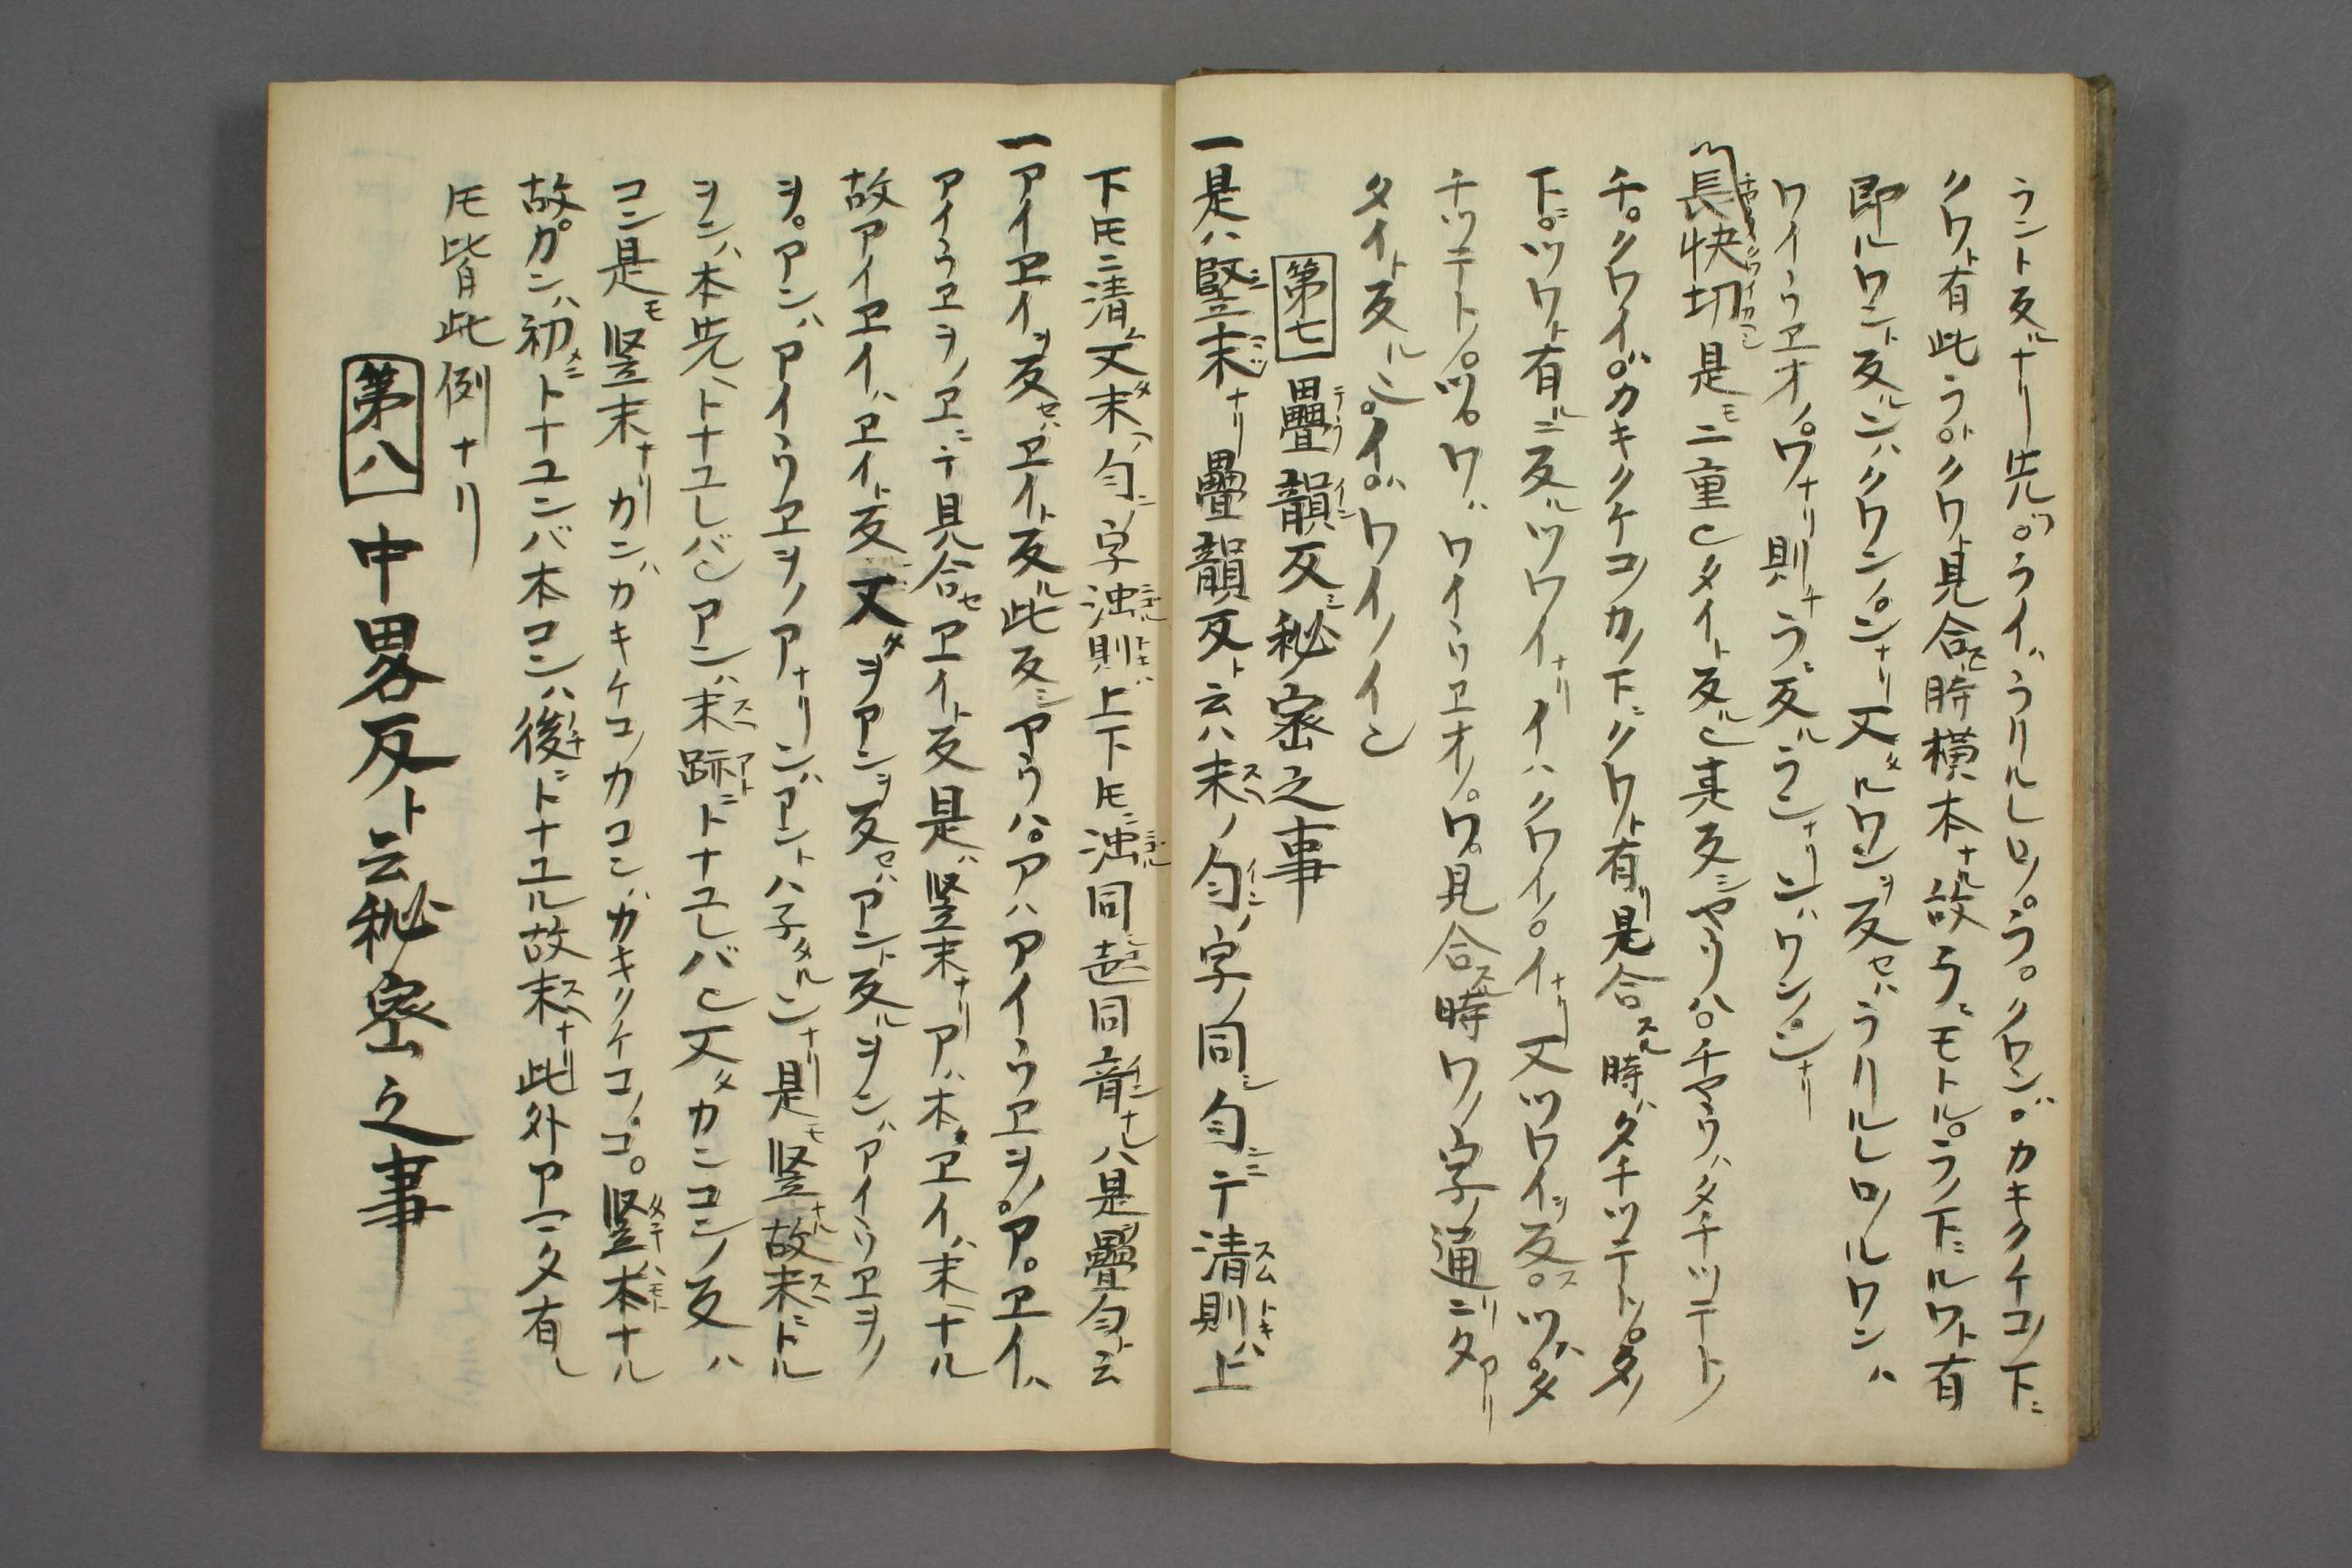 ラント反ルナリ先ツ。ライハラリルレロノ。ラ。クワンガカキクケコノ下ニ
クワト有此ラトクワト見合スル時横本ナル故ラニモトル。ラノ下ニルワト有
即ルワント反ルンハクワンノ。ンナリ又タルワンヲ反セバラリルレロノルワンハ
ワイウヱオノ。ワナリ則チラニ反ルランナリンハワンノ。ンナリ
長快切是モ二重シタイト反ルシ其反シヤウハ。チヤウハタチツテトノ
チ。クワイガ。カキクケコノカノ下ニクワト有リ是合スル時ハタチツテトノ。タノ
下ニ。ツワト有ルニ反ルツワイナリイハクワイノ。イナリ又ツワイヲ反ス。ツハ。タ
チツテトノ。ツ。ワハワイウヱオノ。ワ。見合スル時ワノ字ノ通ニリタアリ
タイト反ルシ。イガワイノイシ
第七 疊韻反シ秘密之事
一是ハ竪ニ末ナリ疊韻反ト云ハ末ノ匀ノ字ノ同シ匀ニテ清則ハ上
下モニ清ム又タ末ヘノ匀ノ字濁則ハ上下モニ濁同起同音ナレハ是ヲ疊匀ト云
一アイヱイヲ反セハヱイト反ル此反シヤウハ。アハアイウヱヲノ。ア。ヱイハ
アイウヱヲノヱニテ見合セヱイト反是ハ竪末ナリアハ本ヱイハ末ヘナル
故アイヱイハヱイト反又タヲアンヲ反セハアント反ルヲンハアイウヱヲノ
ヲ。アンハアイウヱヲノアナリンハアントハ子タルンナリ是モ竪ナル故末ニトル
ヲンハ本先ヘトナユレバシアンハ末跡ニトナユレバシ又タカンコンノ反ハ
コン是モ竪末ナリカンハカキケコノカコンハカキクケコノ。コ。竪ハ本ナル
故。カンハ初メニトナユンバ本コンハ後チニトナユル故末ナリ此外アマタ有レ
モ皆此例ナリ
第八 中畧反ト云秘密之事